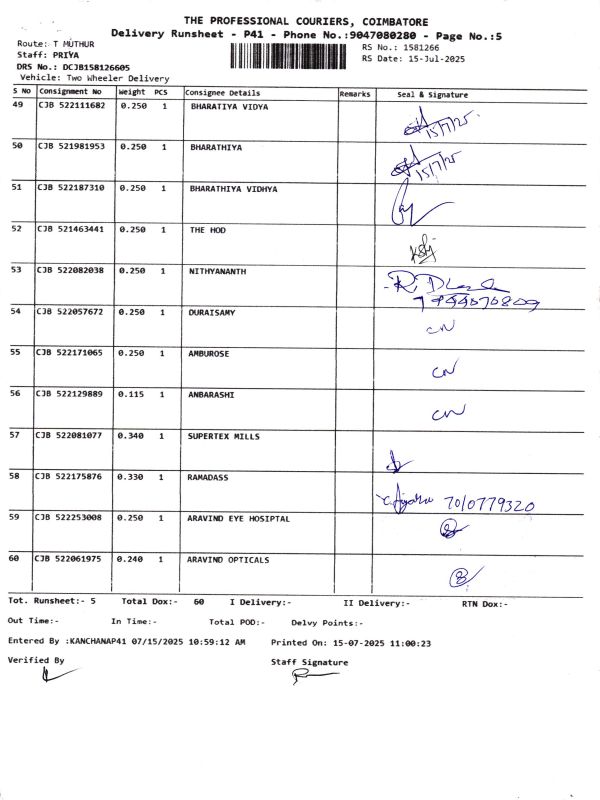 THE PROFESSIONAL COURIERS, COIMBATORE
Delivery Runsheet - P41 - Phone No.:9047080280 - Page No.:5
Route: T MUTHUR
RS No.: 1581266
Staff: PRIYA
RS Date: 15-Jul-2025
DRS No.: DCJB158126605
Vehicle: Two Wheeler Delivery
S No Consignment No Weight PCS Consignee Details Remarks Seal & Signature
49 CJB 522111682 0.250 1 BHARATIYA VIDYA
15/7/25
50 CJB 521981953 0.250 1 BHARATHIYA
15/7/25
51 CJB 522187310 0.250 1 BHARATHIYA VIDHYA
52 CJB 521463441 0.250 1 THE HOD
53 CJB 522082038 0.250 1 NITHYANANTH
54 CJB 522057672 0.250 1 DURAISAMY
CN
55 CJB 522171065 0.250 1 AMBUROSE
CN
56 CJB 522129889 0.115 1 ANBARASHI
CN
57 CJB 522081077 0.340 1 SUPERTEX MILLS
58 CJB 522175876 0.330 1 RAMADASS
7010779320
59 CJB 522253008 0.250 1 ARAVIND EYE HOSIPTAL
60 CJB 522061975 0.240 1 ARAVIND OPTICALS
Tot. Runsheet:- 5 Total Dox:- 60 I Delivery:- II Delivery:- RTN Dox:-
Out Time:- In Time:- Total POD:- Delvy Points:-
Entered By :KANCHANAP41 07/15/2025 10:59:12 AM Printed On: 15-07-2025 11:00:23
Verified By Staff Signature